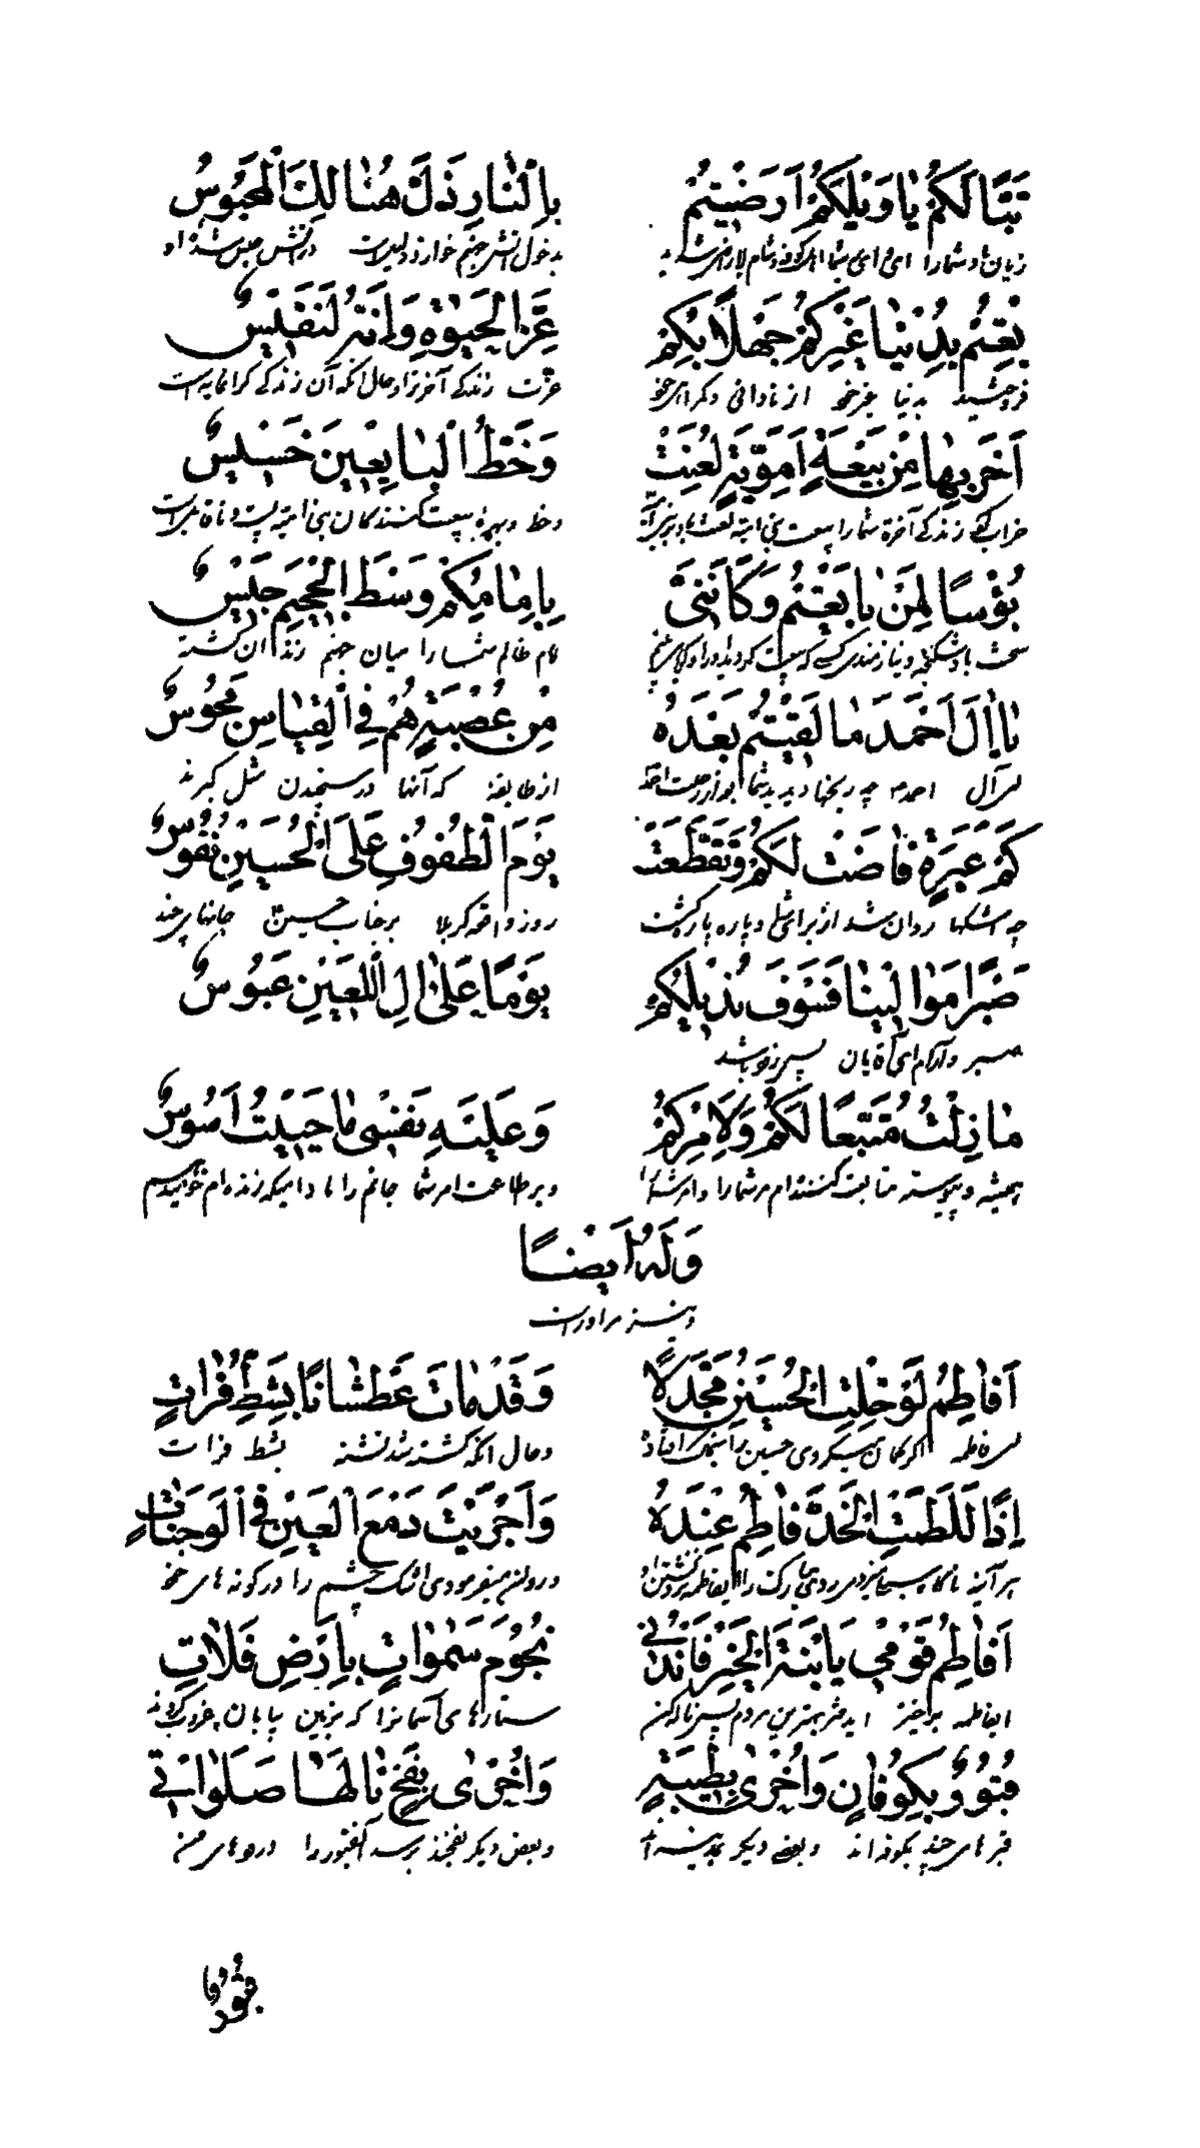 تَبًّا لَكُمْ يٰا وَيْلَكُمْ اَرَضَيْتُمْ بِالنّٰارِ ذَلَّ هُنٰالِكَ الْمَحْبُوسُ
زیان باد شمارا ای وای بشما اهل کوفه و شام
بِعْتُمْ بِدُنْيٰا غَيْرِكُمْ جَهْلًا بِكُمْ عِزَّ الْحَيٰوةِ وَاِنَّهُ لَنَفِيسٌ
فروختید بدنیا غیر خود از نادانی و گمراهی خود عزت زندگی آخرترا و حال آنکه آن زندگی گرانمایه است
اَخْرِبْ بِهٰا مِنْ بَيْعَةٍ اَمَوِيَّةٍ لُعِنَتْ وَحَظُّ الْبٰايِعِينَ خَسِيسٌ
زندگی آخرة شمارا بیعت بنی امیه و حظ و بهره بیعت کنندگان بنی امیه پست و
بُؤْسًا لِمَنْ بٰايَعْتُمُ وَكَاَنَّنِي بِاِمٰامِكُمْ وَسَطَ الْجَحِيمِ حَبِيسٌ
امام ظالم شما را میان جهنم زندان گشته
يٰا اٰلَ اَحْمَدَ مٰا لَقِيتُمْ بَعْدَهُ مِنْ عُصْبَةٍ هُمْ فِي الْقِيٰاسِ مَجُوسٌ
ای آل احمد چه رنجها دیدید شما بعد از از طایفه که آنها در سنجیدن مثل گبرند
كَمْ عَبْرَةٍ فٰاضَتْ لَكُمْ وَتَقَطَّعَتْ يَوْمَ الطُّفُوفِ عَلَى الْحُسَيْنِ نُفُوسٌ
چه اشکها روان شد از برای شما و پاره پاره گشت روز واقعه کربلا بر جناب حسین جانها
صَبْرًا مَوٰالِينٰا فَسَوْفَ نُدِيلُكُمْ يَوْمًا عَلٰى اٰلِ اللَّعِينِ عَبُوسٌ
صبر و آرام ای آقایان پس زود باشد
مٰا زِلْتُ مُتَّبِعًا لَكُمْ وَلِاَمْرِكُمْ وَعَلَيْهِ نَفْسِي مٰا حَيِيتُ اَسُوسُ
همیشه و پیوسته متابعت کننده‌ام مر شما را و امر شما را و بر طاعت امر شما جانم را مادامیکه زنده‌ام
وَلَهُ اَيْضًا
و نیز مر او راست
اَفٰاطِمُ لَوْ خِلْتِ الْحُسَيْنَ مُجَدَّلًا وَقَدْ مٰاتَ عَطْشٰانًا بِشَطِّ فُرٰاتٍ
ای فاطمه اگر گمان میکردی حسین را و حال آنکه کشته شد تشنه بشط فرات
اِذًا لَلَطَمْتِ الْخَدَّ فٰاطِمُ عِنْدَهُ وَاَجْرَيْتِ دَمْعَ الْعَيْنِ فِي الْوَجَنٰاتِ
و روان میفرمودی اشک چشم را در گونه‌های خود
اَفٰاطِمُ قُومِي يَا ابْنَةَ الْخَيْرِ فَانْدُبِي نُجُومَ سَمٰوٰاتٍ بِاَرْضِ فَلٰاتٍ
ایفاطمه برخیز ای دختر بهترین مردم پس ناله کن ستارهای آسمانرا که بزمین بیابان غروب کردند
قُبُورٌ بِكُوفٰانٍ وَاُخْرٰى بِطَيْبَةٍ وَاُخْرٰى بِفَخٍّ نٰالَهٰا صَلَوٰاتِي
قبرهای چند بکوفه‌اند و بعض دیگر بمدینه‌اند و بعض دیگر بفخند برسد آنقبور را درودهای من